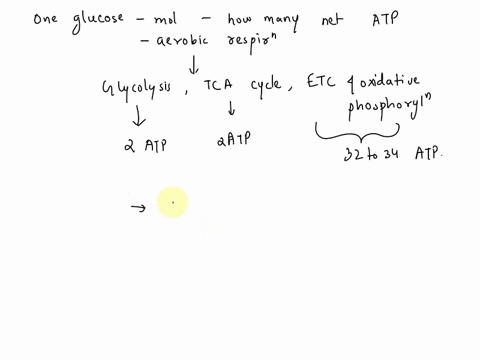 One glucose - mol - how many net ATP
- aerobic respirⁿ
Glycolysis, TCA cycle, ETC & oxidative
phosphorylⁿ
2 ATP 2ATP
32 to 34 ATP.